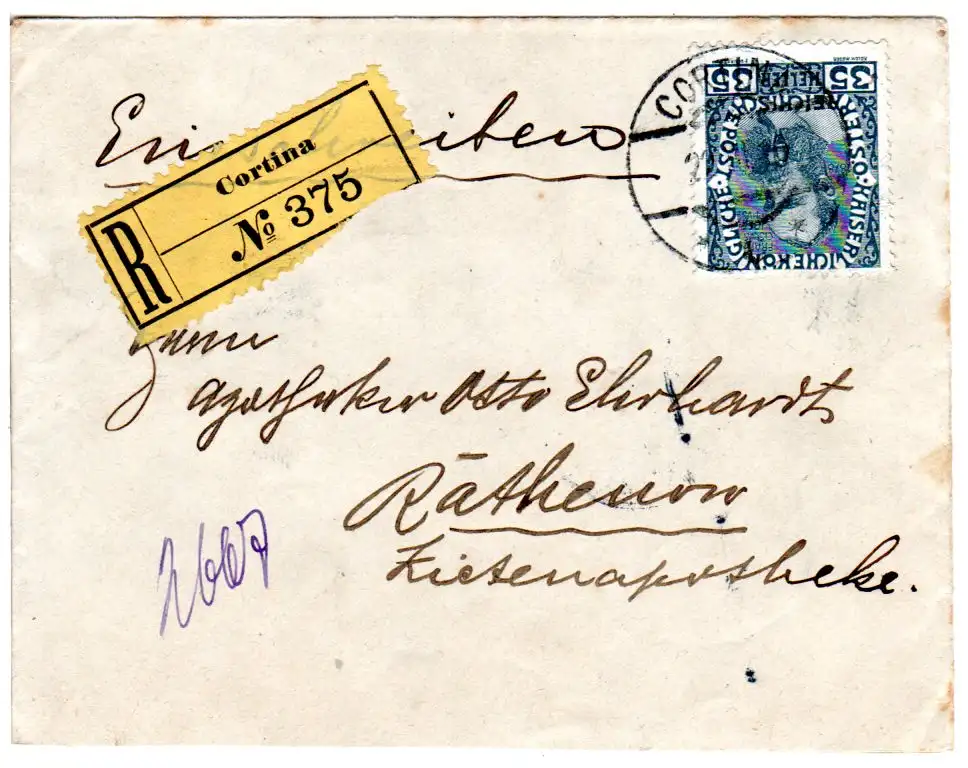 Einschreiben
R
Cortina
№ 375
CORTIN
35 HELLER 35
KAISERL·KÖNIGLICHE
REICHISCHE POST
Herrn
Apotheker Otto Ehrhardt
Rathenow
Zietenapotheke.
2667